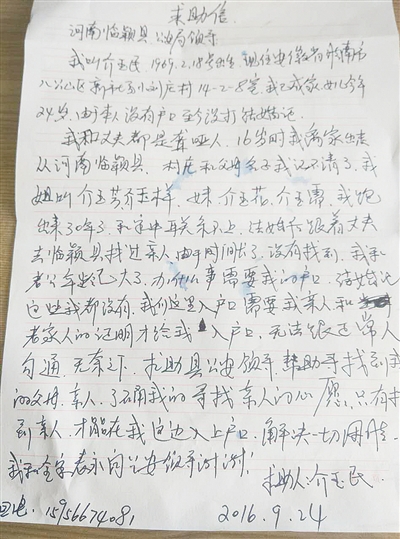 求助信
河南临颍县公安局领导
我叫介玉民,1969.2.18号出生,现住安徽省淮南市
八公山区新社区小刘庄村14-2-8室,我已成家,女儿今年
24岁,由于本人没有户口至今没打结婚记.
我和丈夫都是聋哑人,16岁时我离家出走
从河南临颍县,村庄和父母名字我记不清了,我
姐叫介玉芳介玉样,妹介玉花介玉霜,我跑
出来30年了,和家中联系不上,结婚后跟着丈夫
去临颍县找过亲人,由于时间长了,没有找到,我和
老公年龄已大了,办什么事需要我的户口,结婚记
这些我都没有,我们这里入户口需要我亲人和
老家人的证明才给我入户口,无法跟正常人
勾通,无奈之下,求助县公安领导,帮助寻找到我
的父母,亲人,了却我的寻找亲人的心愿,只有找
到亲人,才能在我这边入上户口,解决一切困难.
我和全家表示向公安领导谢谢!
求助人:介玉民
电:15956674081
2016.9.24